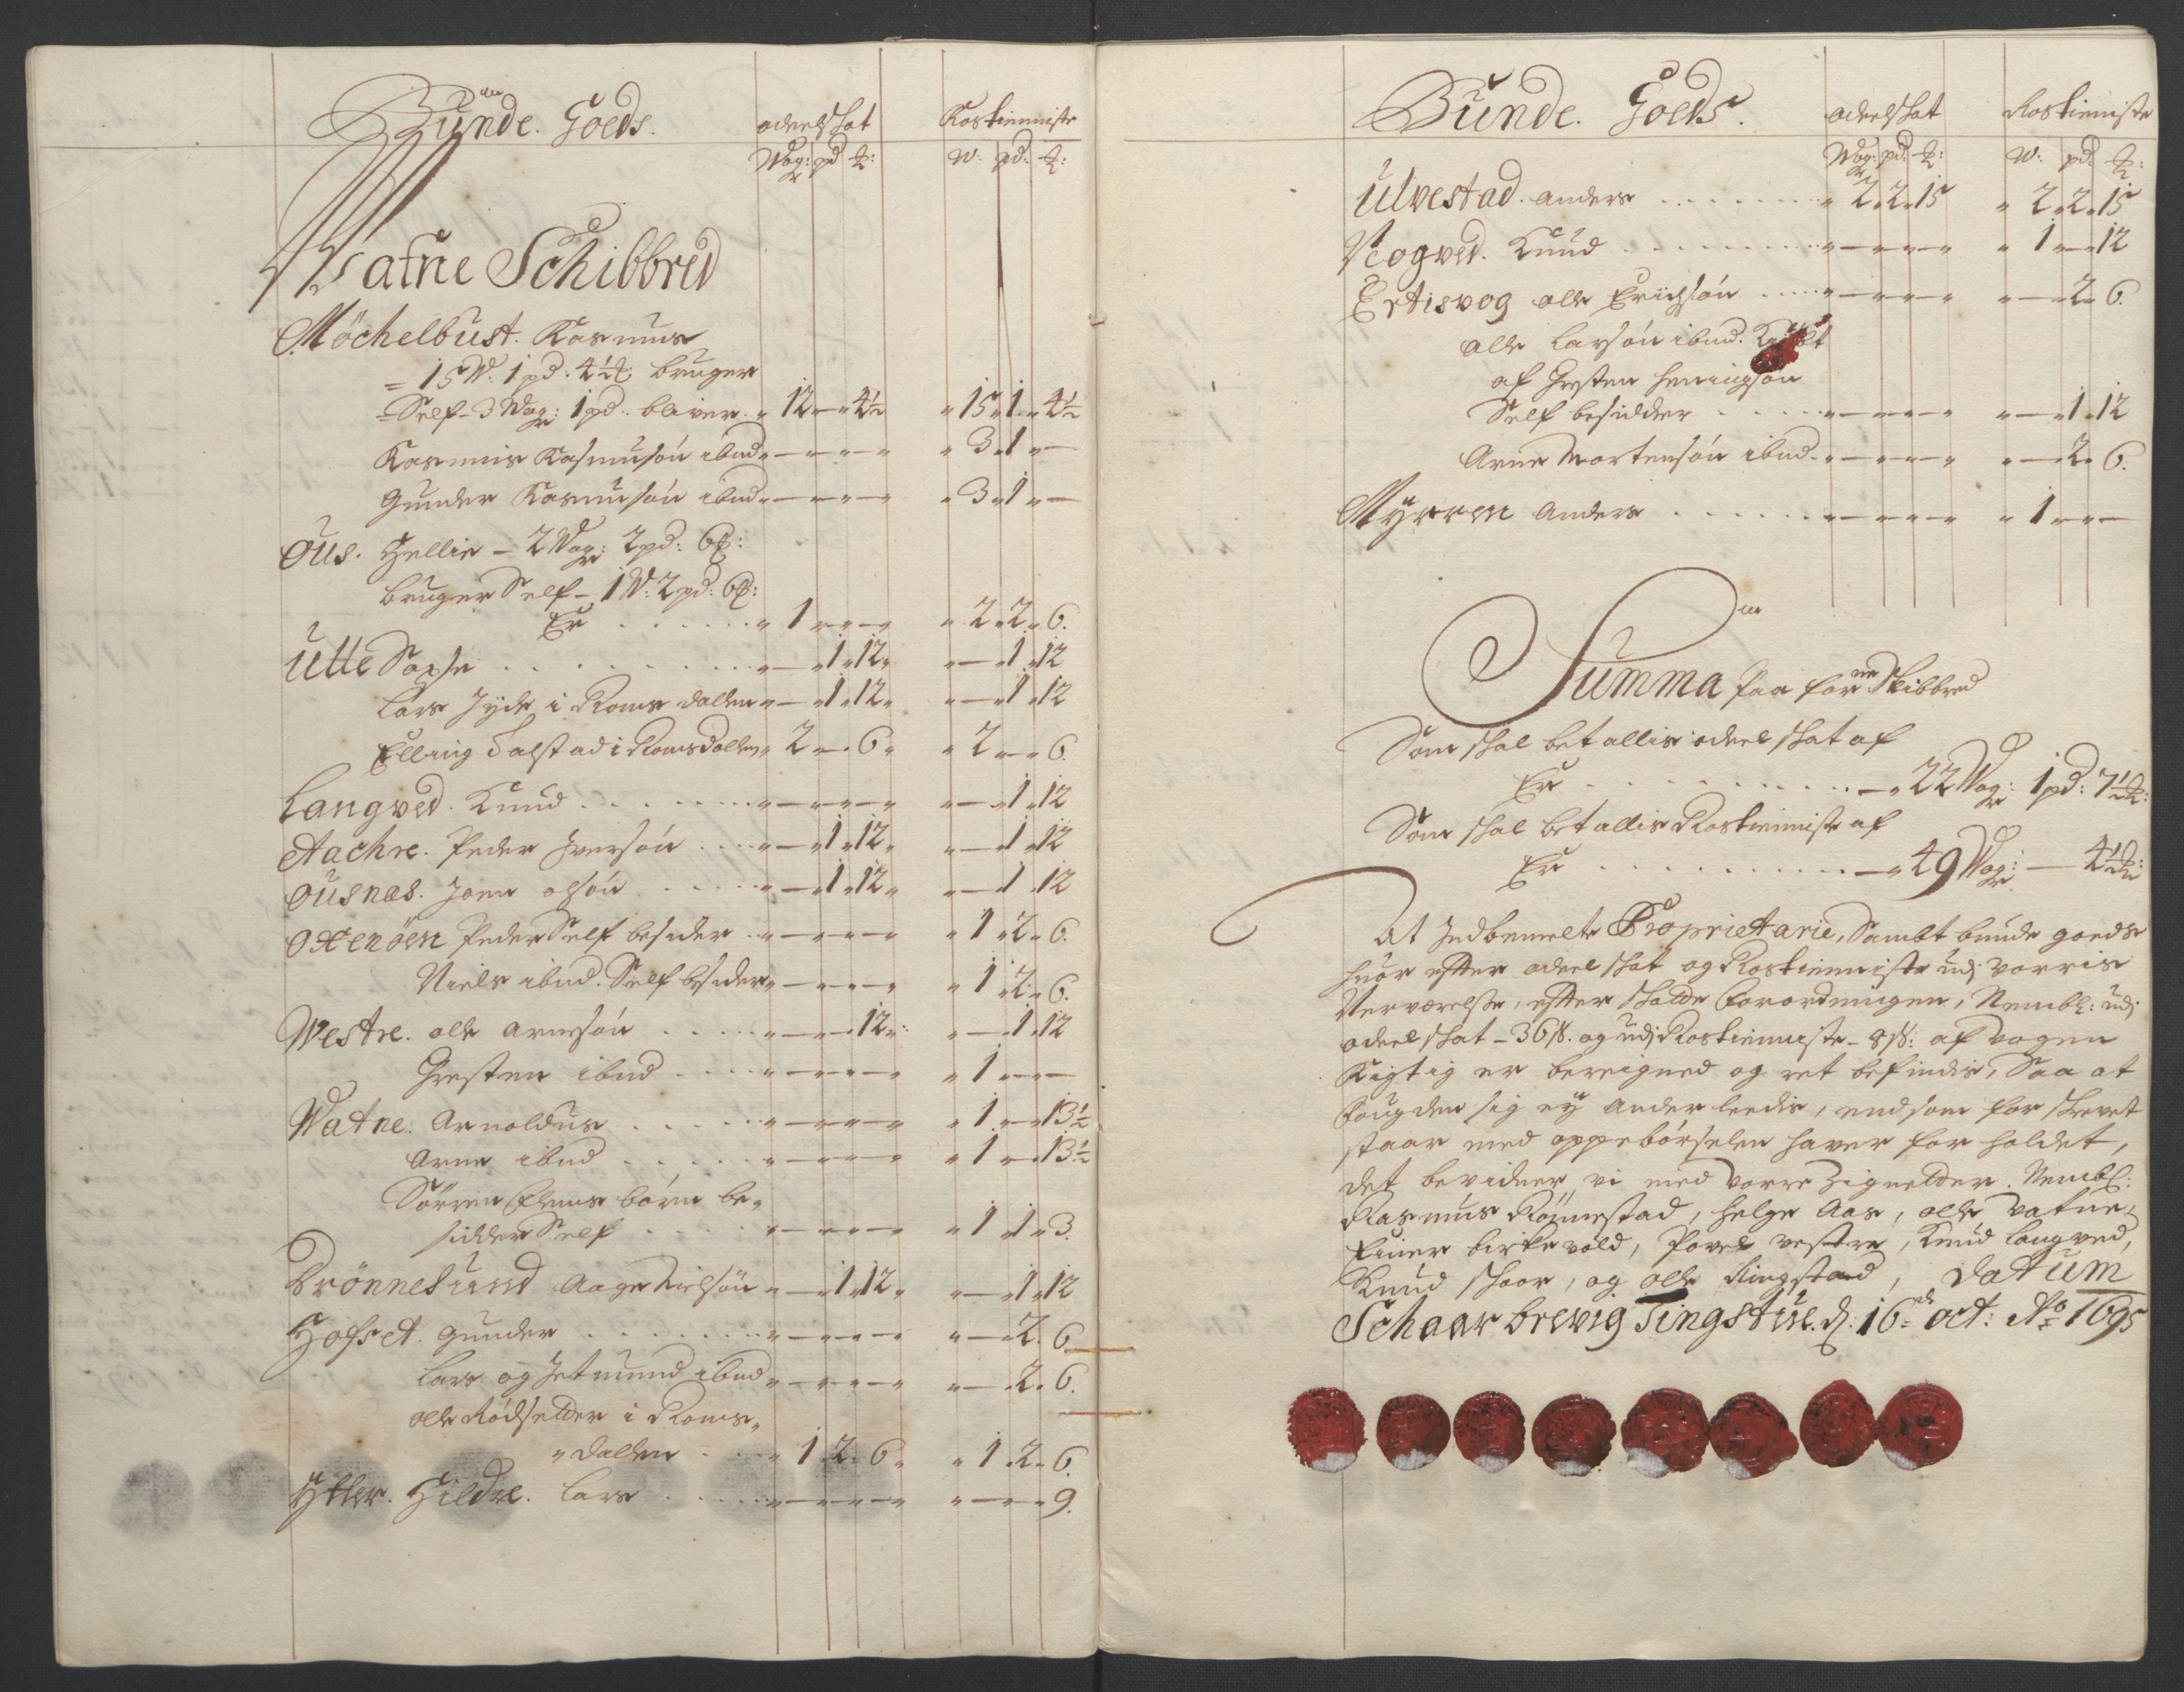 Bunde. Goeds. odelschat Rostienniste
Wog: pd ℔: W. pd: ℔:
Watne Schibbred
Möchelbust. Rasmus
= 15 W. 1 pd. 4½ ℔ bruger
Self - 3 Wog: 1 pd. bliver „ 12 — „ 4½ „ 15 „ 1 „ 4½
Rasmus Rasmusøn ibnd „ — „ — „ — „ „ 3 „ 1 „ —
Gunder Rasmusøn ibnd „ — „ — „ — „ „ 3 „ 1 „ —
Ous. Hellie - 2 Wog: 2 pd: 6 ℔:
bruger Self - 1 W: 2 pd: 6 ℔:
Er . . . . . „ 1 „ — „ — „ 2 „ 2 „ 6.
Utte Saxse . . . . . „ — „ 1 „ 12 „ „ — „ 1 „ 12
Lars Jyde i Roms dallen „ — „ 1 „ 12 „ „ — „ 1 „ 12
Elling Talstad i Romsdallen „ 2 — „ 6 „ „ 2 „ — „ 6.
Langved. Knud . . . . „ — „ — „ — „ „ — „ 1 „ 12
Aachre. Peder Iversøn . . . „ — „ 1 „ 12 „ „ — „ 1 „ 12
Ousnæs. Joen olsøn . . . „ — „ 1 „ 12 „ „ — „ 1 „ 12
Oxenöen Peder Self besider „ — „ — „ — „ „ 1 „ 2 „ 6.
Niels ibnd. Self besider „ — „ — „ — „ „ 1 „ 2 „ 6.
Westre. olle arnesøn . . . „ — „ — „ 12 „ „ — „ 1 „ 12
Gresten ibnd . . . „ — „ — „ — „ „ 1 „ — „ —
Watne. Arnoldus . . . . „ — „ — „ — „ „ 1 „ — „ 13½
Arne ibnd . . . . „ — „ — „ — „ „ 1 „ — „ 13½
Sörren børn be„
sidder Self . . . „ — „ — „ — „ „ 1 „ 1 „ 3.
Drönnesund Aage Nielsøn „ — „ 1 „ 12 „ „ — „ 1 „ 12
Hofset. gunder . . . . „ — „ — „ — „ „ — „ 2 „ 6
Lars og Jetmund ibnd „ — „ — „ — „ „ — „ 2 „ 6.
olle Rödseller i Roms„
„dallen . . . „ 1 „ 2 „ 6 „ „ 1 „ 2 „ 6.
Ytter. Hildre. Lars . . . . „ — „ — „ — „ „ — „ — „ 9.
Bunde. Goeds. odelschat Rostienniste
Wog: pd: ℔: W: pd: ℔:
Ulvestad. anders . . . . . „ 2 „ 2 „ 15 „ 2 „ 2 „ 15
Vogved. Knud . . . . . „ — „ — „ — „ „ 1 „ — „ 12
Ertisvog olle Erichsøn . . . „ — „ — „ — „ „ — „ 2 „ 6.
olle Larsøn ibnd.
af Gresten Heningsøn
Self besidder . . . . „ — „ — „ — „ „ — „ 1 „ 12
Arne Mortensøn ibnd „ — „ — „ — „ „ — „ 2 „ 6.
Myrren Anders . . . . . „ — „ — „ — „ „ 1 „ — „ —
Summa paa forne Skibbred
Som schal betallis odelschat af
Er . . . . . . . . — „ 22 Wog: 1 pd: 7½ ℔:
Som schal betallis Rostienniste af
Er . . . . . . . . — „ 49 Wog: — 4½ ℔:
At Indbemelte Proprietarie, Sambt bunde goeds
huor effter odelschat og Rostienniste udj vorris
Nerværelse, effter schatte forordningen, Nembl: udj
odelschat - 36 s. og udj Rostienniste - 8 s: af vogen
Rigtig er bereigned og ret befindis, Saa at
fougden sig ey anderleedis, end som forschrevet
staar med oppebørselen haver forholdet,
det bevidner vi med vorre Zignetter. Nembl:
Rasmus Rönnestad, Helge Aas, olle Vatne,
Einer birkevold, Povel Vestre, Knud Langved,
Knud schoor, og olle Ringstad, Datum
Schaarbrevig Tingstue. d: 16de oct: Ao 1695